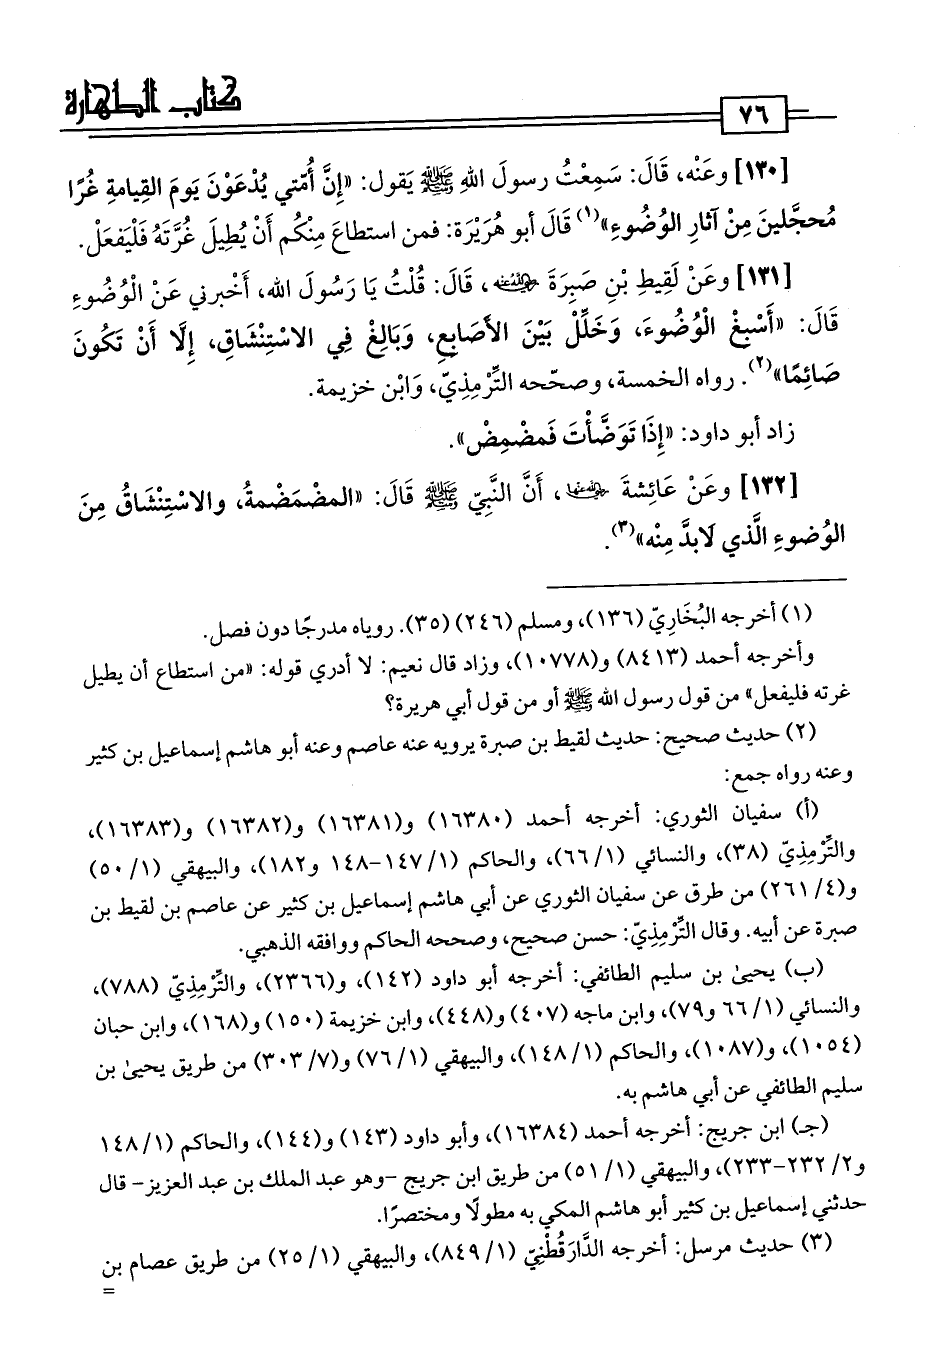 كتاب الطهارة
٧٦
[١٣٠] وعَنْه، قَالَ: سَمِعْتُ رسولَ اللهِ ﷺ يَقول: «إِنَّ أُمَّتي يُدْعَوْنَ يَومَ القِيامةِ غُرًّا
مُحجَّلينَ مِنْ آثارِ الوُضُوءِ»(١) قَالَ أبو هُرَيْرَة: فمن استطاعَ مِنْكُم أَنْ يُطِيلَ غُرَّتَهُ فَلْيَفعَلْ.
[١٣١] وعَنْ لَقِيطِ بْنِ صَبِرَةَ رضي الله عنه، قَالَ: قُلْتُ يَا رَسُولَ الله، أَخْبرني عَنْ الْوُضُوءِ
قَالَ: «أَسْبِغْ الْوُضُوءَ، وَخَلِّلْ بَيْنَ الأَصَابِعِ، وَبَالِغْ فِي الاسْتِنْشَاقِ، إِلَّا أَنْ تَكُونَ
صَائِمًا»(٢). رواه الخمسة، وصحّحه التِّرْمِذِيّ، وَابْن خزيمة.
زاد أبو داود: «إِذَا تَوَضَّأْتَ فَمضْمِضْ».
[١٣٢] وعَنْ عَائِشةَ رضي الله عنها، أَنَّ النَّبِيّ ﷺ قَالَ: «المضْمَضمةُ، والاسْتِنْشَاقُ مِنَ
الوُضوءِ الَّذي لَابدَّ مِنْه»(٣).
(١) أخرجه البُخَارِيّ (١٣٦)، ومسلم (٢٤٦) (٣٥). روياه مدرجًا دون فصل.
وأخرجه أحمد (٨٤١٣) و(١٠٧٧٨)، وزاد قال نعيم: لا أدري قوله: «من استطاع أن يطيل
غرته فليفعل» من قول رسول الله ﷺ أو من قول أبي هريرة؟
(٢) حديث صحيح: حديث لقيط بن صبرة يرويه عنه عاصم وعنه أبو هاشم إسماعيل بن كثير
وعنه رواه جمع:
(أ) سفيان الثوري: أخرجه أحمد (١٦٣٨٠) و(١٦٣٨١) و(١٦٣٨٢) و(١٦٣٨٣)،
والتِّرْمِذِيّ (٣٨)، والنسائي (١/ ٦٦)، والحاكم (١/ ١٤٧-١٤٨ و١٨٢)، والبيهقي (١/ ٥٠)
و(٤/ ٢٦١) من طرق عن سفيان الثوري عن أبي هاشم إسماعيل بن كثير عن عاصم بن لقيط بن
صبرة عن أبيه. وقال التِّرْمِذِيّ: حسن صحيح، وصححه الحاكم ووافقه الذهبي.
(ب) يحيىٰ بن سليم الطائفي: أخرجه أبو داود (١٤٢)، و(٢٣٦٦)، والتِّرْمِذِيّ (٧٨٨)،
والنسائي (١/ ٦٦ و٧٩)، وابن ماجه (٤٠٧) و(٤٤٨)، وابن خزيمة (١٥٠) و(١٦٨)، وابن حبان
(١٠٥٤)، و(١٠٨٧)، والحاكم (١/ ١٤٨)، والبيهقي (١/ ٧٦) و(٧/ ٣٠٣) من طريق يحيىٰ بن
سليم الطائفي عن أبي هاشم به.
(جـ) ابن جريج: أخرجه أحمد (١٦٣٨٤)، وأبو داود (١٤٣) و(١٤٤)، والحاكم (١/ ١٤٨
و٢/ ٢٣٢-٢٣٣)، والبيهقي (١/ ٥١) من طريق ابن جريج -وهو عبد الملك بن عبد العزيز- قال
حدثني إسماعيل بن كثير أبو هاشم المكي به مطولًا ومختصرًا.
(٣) حديث مرسل: أخرجه الدَّارَقُطْنِيّ (١/ ٨٤٩)، والبيهقي (١/ ٢٥) من طريق عصام بن
=